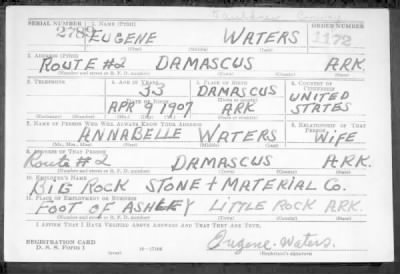 SERIAL NUMBER 1. NAME (Print) ORDER NUMBER
2789 EUGENE WATERS 1172
(First) (Middle) (Last)
2. ADDRESS (Print)
ROUTE #2 DAMASCUS ARK.
(Number and street or R. F. D. number) (Town) (County) (State)
3. TELEPHONE 4. AGE IN YEARS 5. PLACE OF BIRTH 6. COUNTRY OF CITIZENSHIP
33 DAMASCUS UNITED
DATE OF BIRTH
APR 9 1907 ARK STATES
7. NAME OF PERSON WHO WILL ALWAYS KNOW YOUR ADDRESS 8. RELATIONSHIP OF THAT PERSON
ANNABELLE WATERS WIFE
(Mr., Mrs., Miss) (First) (Middle) (Last)
9. ADDRESS OF THAT PERSON
Route #2 DAMASCUS ARK.
(Number and street or R. F. D. number) (Town) (County) (State)
10. EMPLOYER'S NAME
BIG ROCK STONE + MATERIAL CO.
11. PLACE OF EMPLOYMENT OR BUSINESS
FOOT OF ASHLEY LITTLE ROCK ARK.
(Number and street or R. F. D. number) (Town) (County) (State)
I AFFIRM THAT I HAVE VERIFIED ABOVE ANSWERS AND THAT THEY ARE TRUE.
REGISTRATION CARD Eugene Waters.
D. S. S. Form 1 (over) (Registrant's signature)